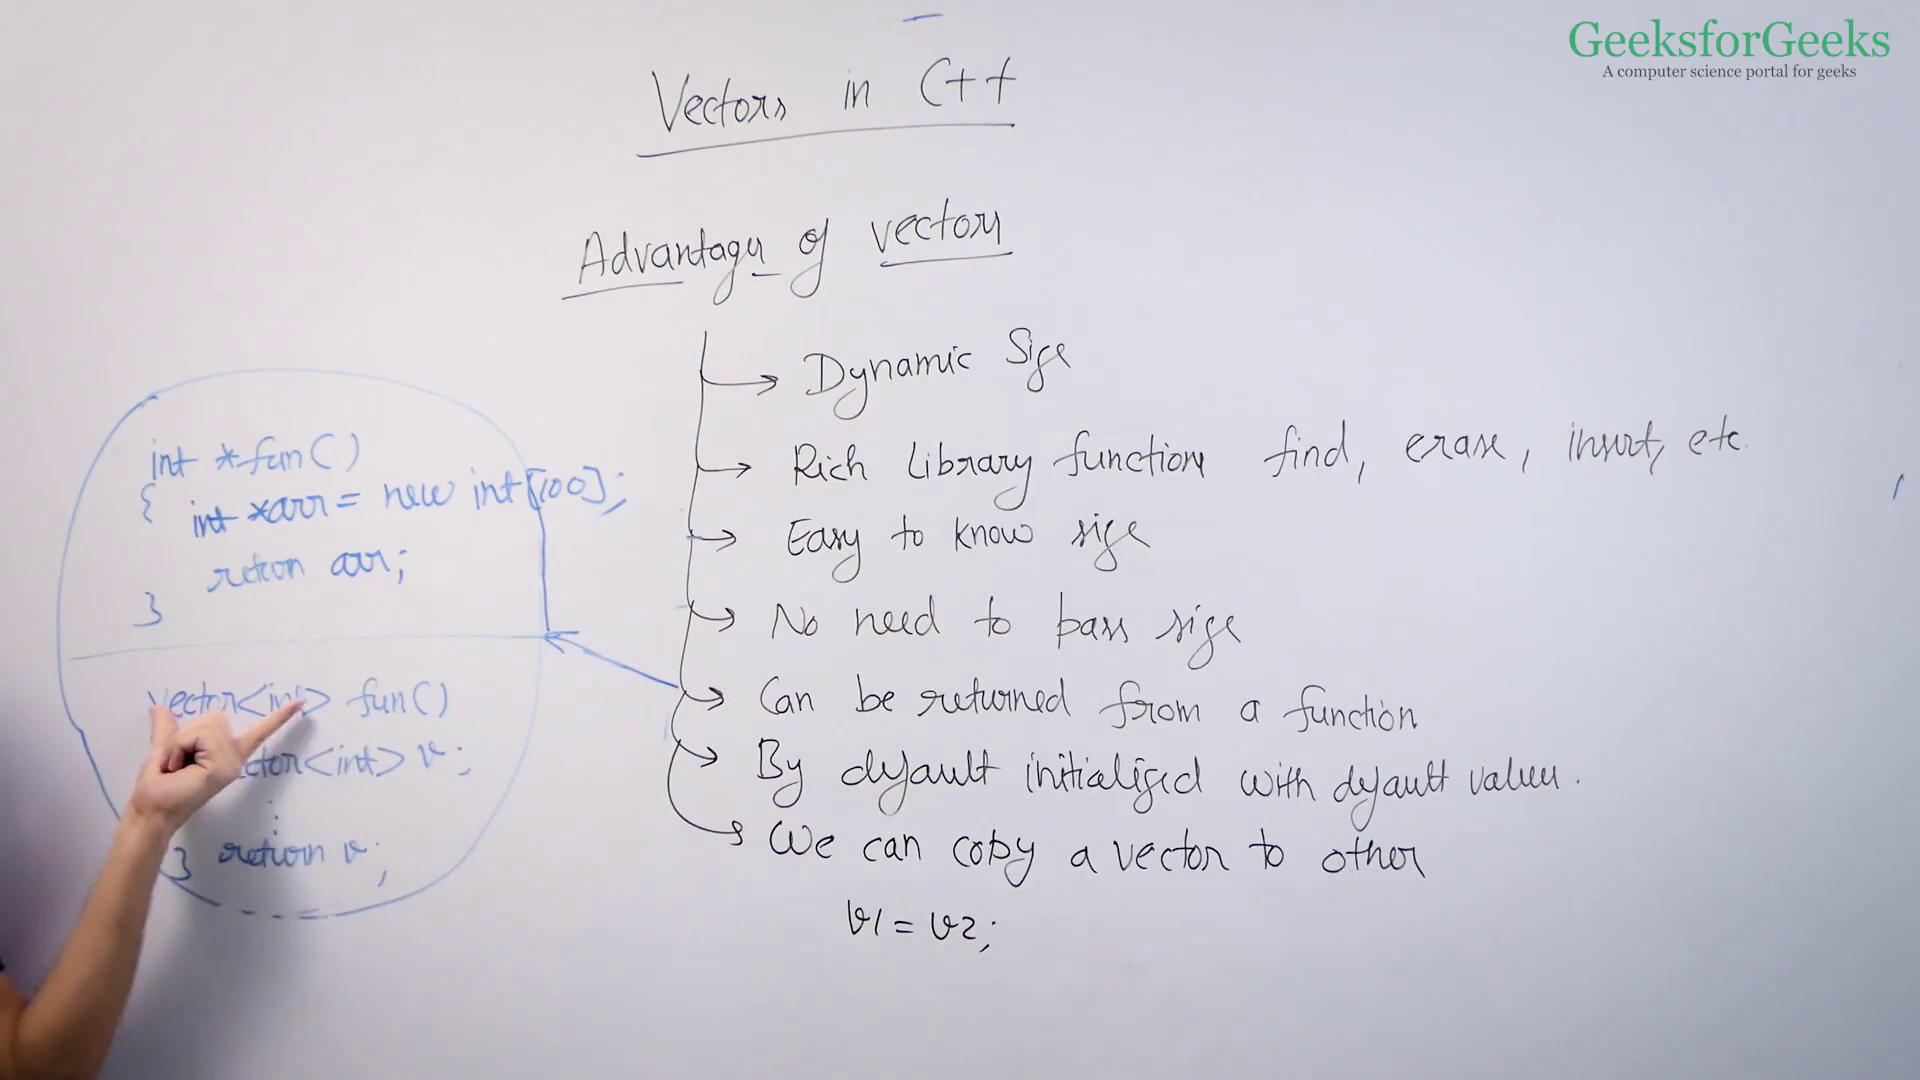 GeeksforGeeks
A computer science portal for geeks
Vectors in C++
Advantages of vectors
Dynamic Size
Rich Library functions find, erase, insert, etc.
Easy to know size
No need to pass size
Can be returned from a function
By default initialized with default values.
We can copy a vector to other
v1 = v2;
int *fun()
{ int *arr = new int[100];
return arr;
}
vector<int> fun()
<int> v;
} return v;